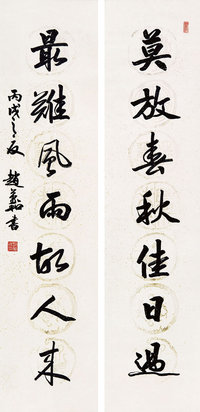 莫放春秋佳日過
最難風雨故人來
丙戌之夏 趙 書